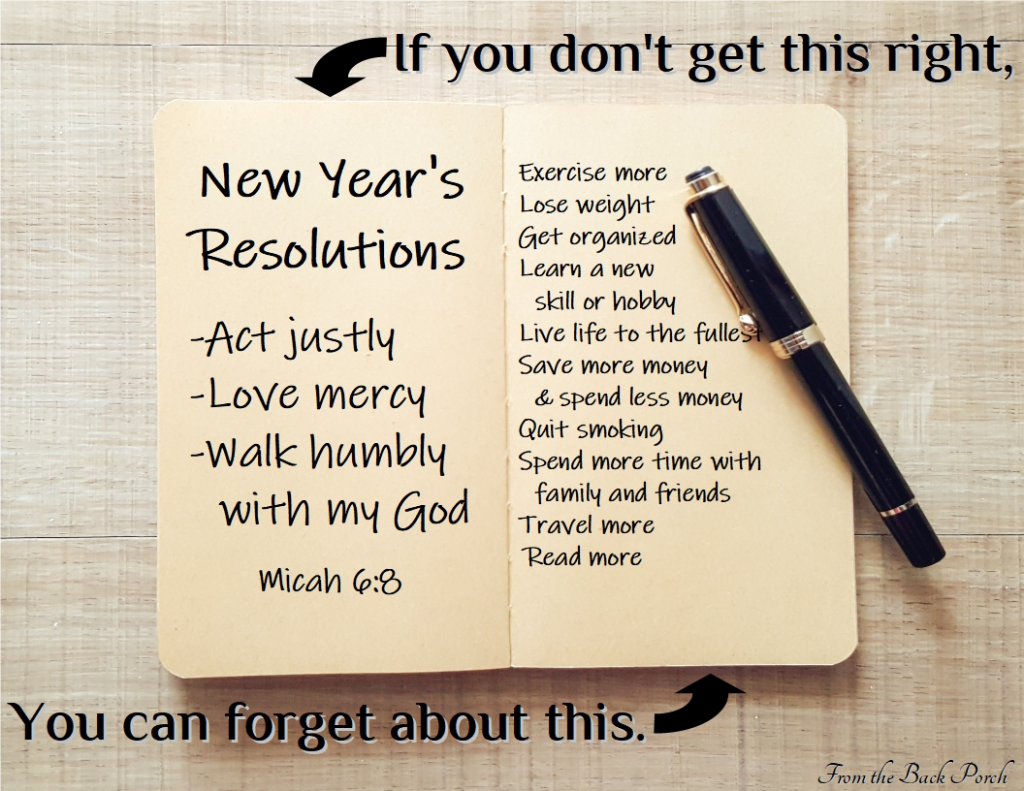 If you don't get this right,
New Year's
Resolutions
-Act justly
-Love mercy
-Walk humbly
with my God
Micah 6:8
Exercise more
Lose weight
Get organized
Learn a new
skill or hobby
Live life to the fullest
Save more money
& spend less money
Quit smoking
Spend more time with
family and friends
Travel more
Read more
You can forget about this.
From the Back Porch